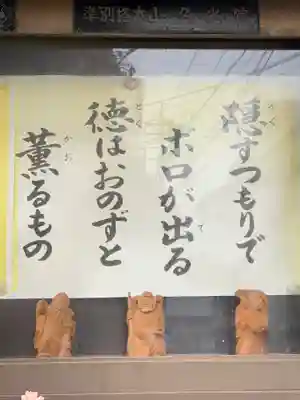 隠すつもりで
ボロが出る
徳はおのずと
薫るもの